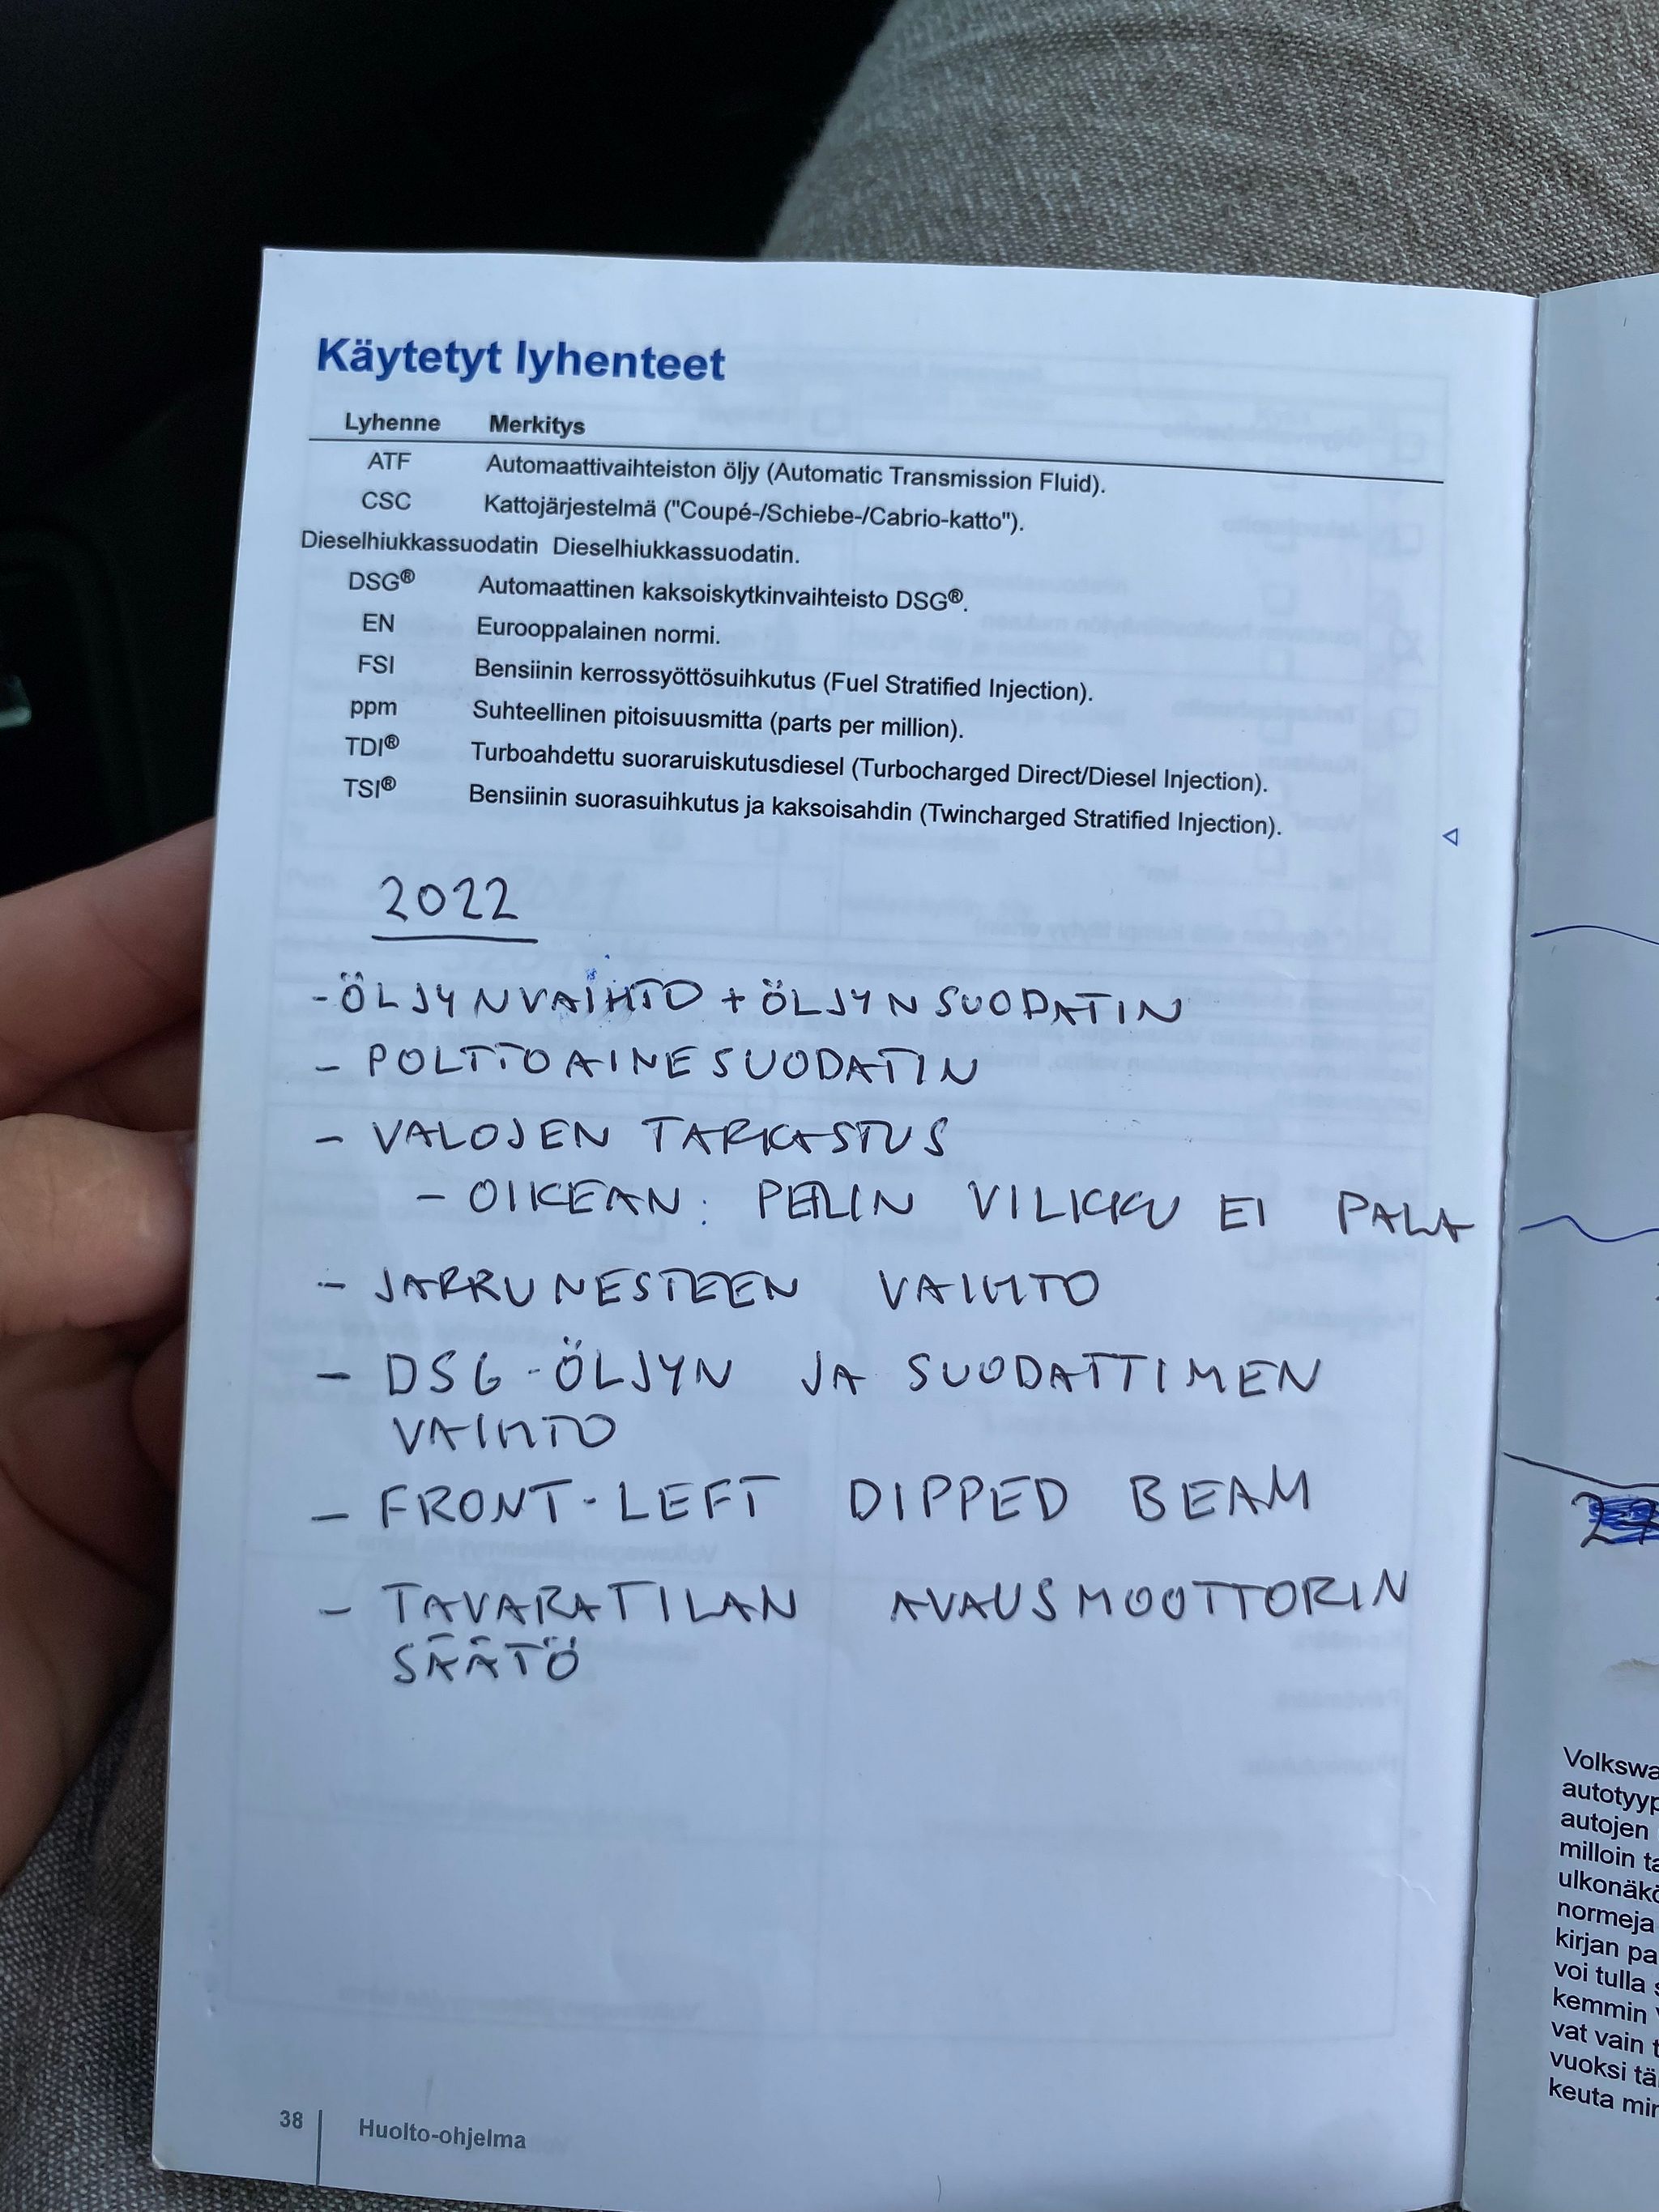 Käytetyt lyhenteet
Lyhenne Merkitys
ATF Automaattivaihteiston öljy (Automatic Transmission Fluid).
CSC Kattojärjestelmä ("Coupé-/Schiebe-/Cabrio-katto").
Dieselhiukkassuodatin Dieselhiukkassuodatin.
DSG® Automaattinen kaksoiskytkinvaihteisto DSG®.
EN Eurooppalainen normi.
FSI Bensiinin kerrossyöttösuihkutus (Fuel Stratified Injection).
ppm Suhteellinen pitoisuusmitta (parts per million).
TDI® Turboahdettu suoraruiskutusdiesel (Turbocharged Direct/Diesel Injection).
TSI® Bensiinin suorasuihkutus ja kaksoisahdin (Twincharged Stratified Injection).
2022
- ÖLJYNVAIHTO + ÖLJYNSUODATIN
- POLTTOAINESUODATIN
- VALOJEN TARKASTUS
- OIKEAN: PEILIN VILKKU EI PALA
- JARRUNESTEEN VAIHTO
- DSG-ÖLJYN JA SUODATTIMEN
VAIHTO
- FRONT-LEFT DIPPED BEAM
- TAVARATILAN AVAUSMOOTTORIN
SÄÄTÖ
38 Huolto-ohjelma
autojen
milloin
normeja
voi tulla
vat vain
vuoksi